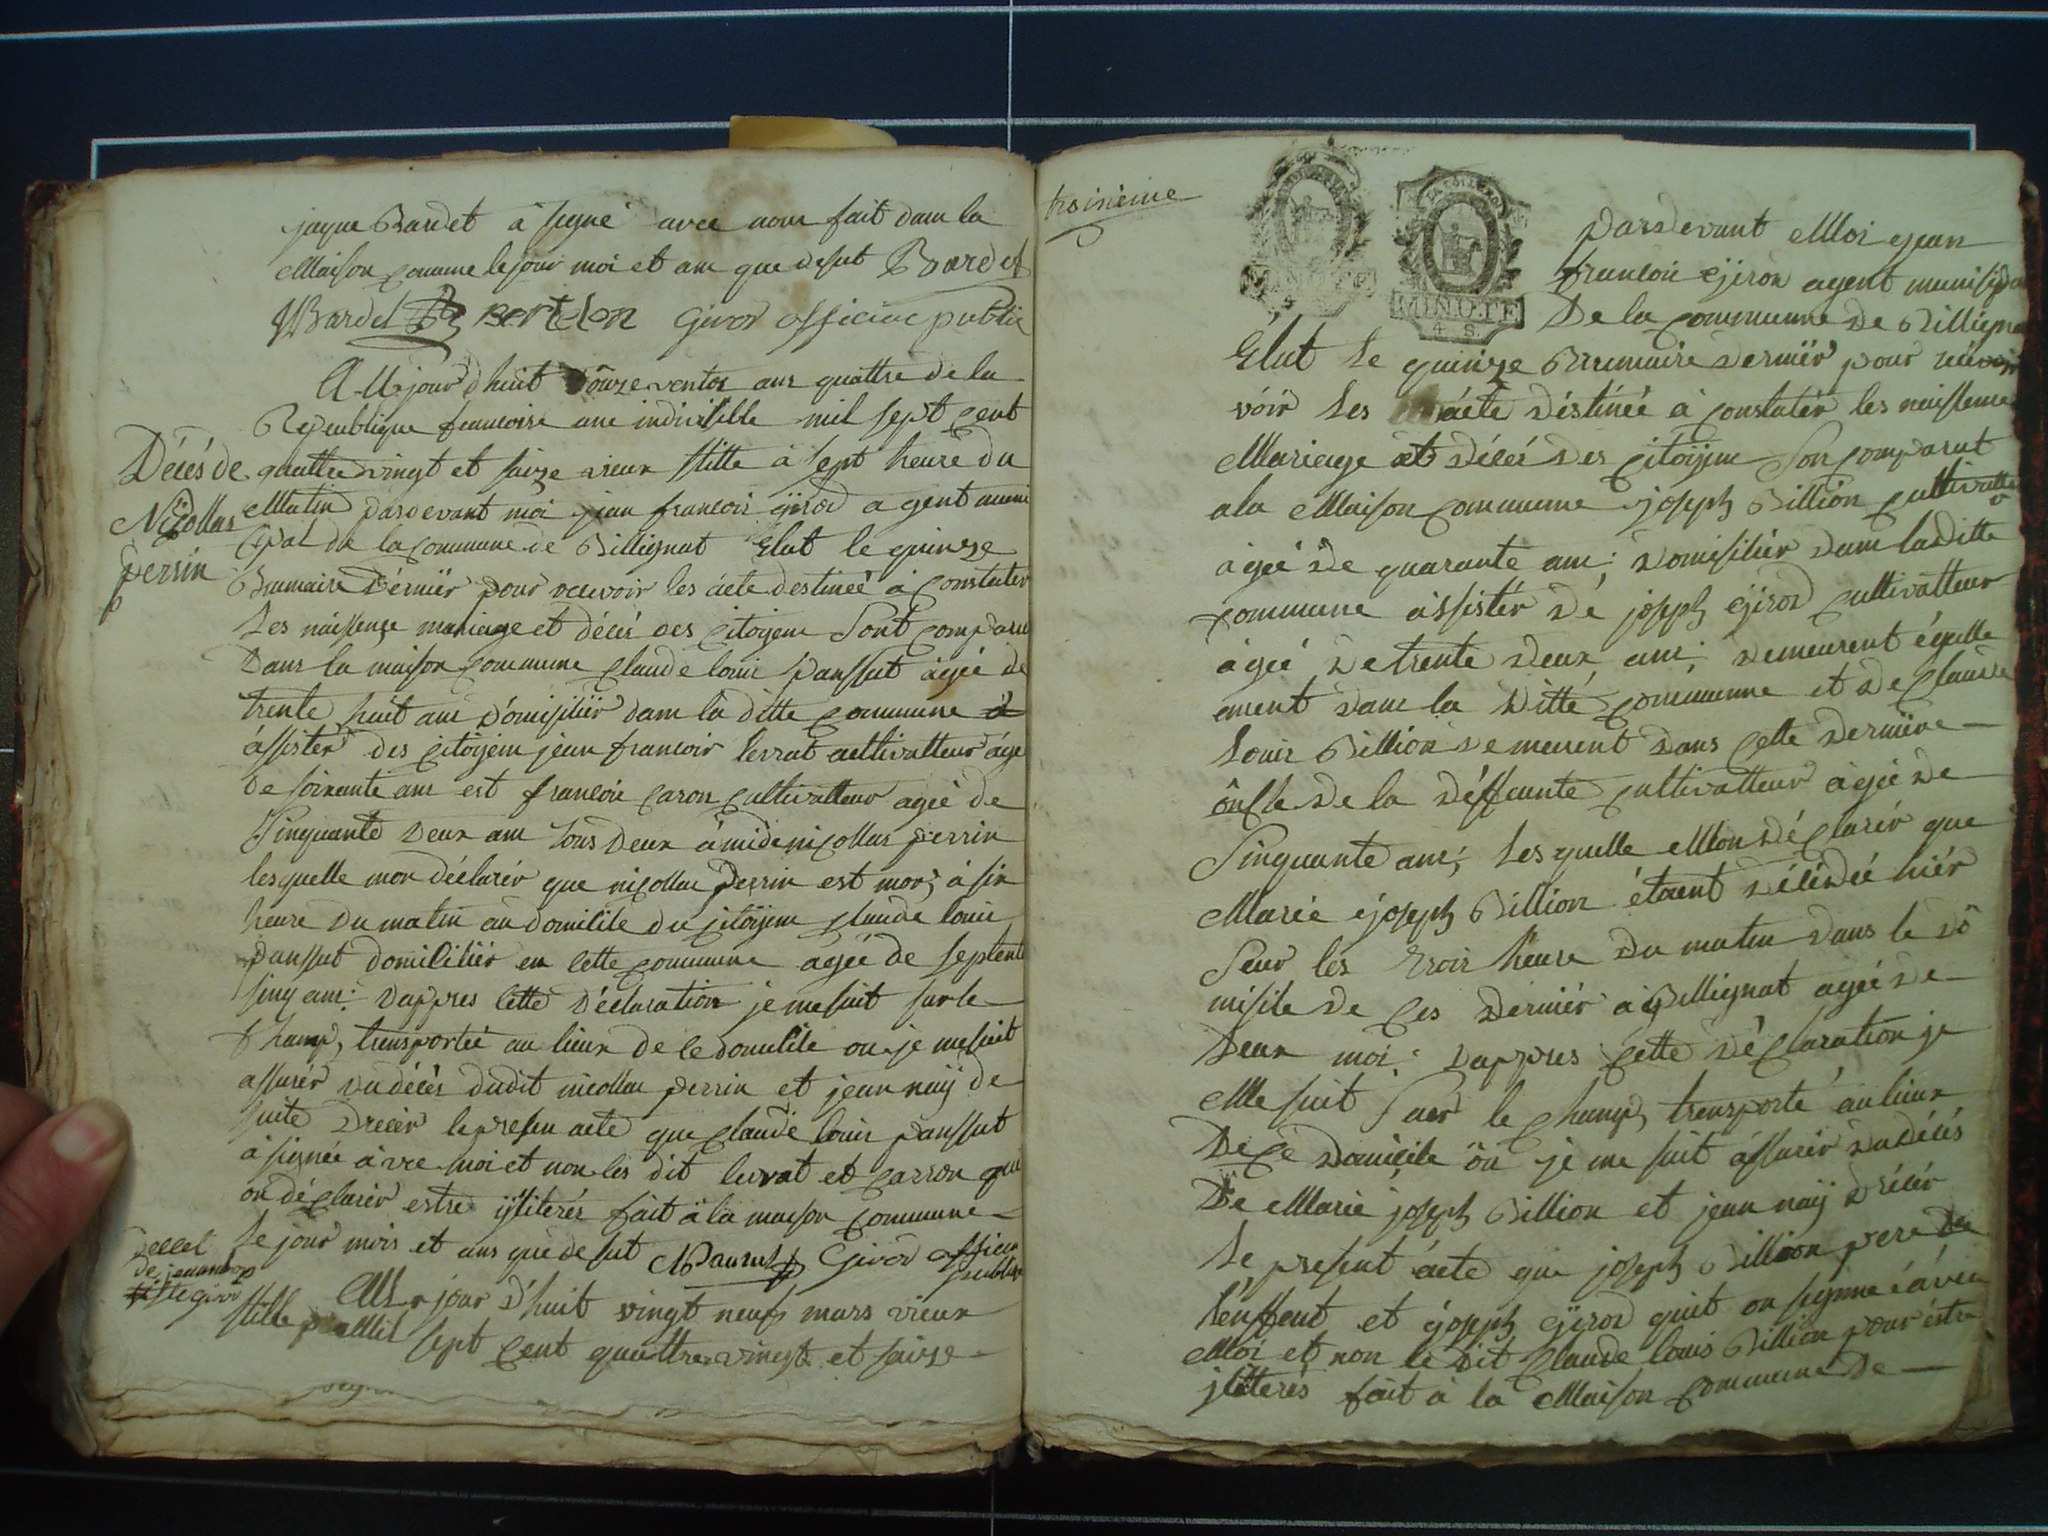 jaque Bardet à signé avec nous fait dans la
Maison Comune le jour moi et ans que desut Bardet
Bardet bertelon Girod officiee public
AUjourd'huit douze ventos ans quattre de la
Republique francoise une indivisible mil sept Cent
quattre vingt et saize vieux stille à sept heure du
Matin pardevant moi jean francois girod agent muni
Cipal de la Commune de Billignat Elut le quinze
Brumaire dérniér pour recevoir les acte destineé à Constater
Les naissençe mariage et décés des Citoÿen Sont Comparu
Dans la maison Commune Claude louis Panssut agée de
trente huit ans domisiliér dans la ditte Commune
assistér des Citoÿens jean francois levrat cultivatteur âgé
de soixante ans est francois Caron Cultivatteur ageé de
Sinquante deux ans tous deux ami de nicollas perrin
lesquelle mon déclarér que nicollas perrin est mort à six
heure du matin au domicile du Citoÿen Claude louis
panssut domiciliér en cette Commune âgeé de septente
sinq ans dappres cette déclaration je me suit sur le
Champ transporteé au lieux de ce domicile ou je me suit
assurér du décés dudit nicollas perrin et jean naÿ de
suite drecér le presen acte que Claude louis panssut
à signée àvec moi et non les dit levrat et Carron que
on déclarér estre ÿlliterér fait à la maison Commune
Le jour mois et ans que de sut Girod officier
public
Décés de
Nicollas
perrin
AUjour d'huit vingt neuf mars vieux
stille Mil sept Cent quattre vingt et saize
troisieme
MINUTE
MINUTE
4. S.
Pardevant Moi jean
francois Girod agent munisipal
De la Commune de Billignat
Elut Le quinze Brumaire dernier pour
vóir Les acte déstineé a Constatér les naissence
Mariage et décés des Citoÿens Son Comparut
a la Maison Commune joseph Billion Cultivatteur
ageé de quarante ans domisiliér dans laditte
Commune assistér de joseph Girod Cultivatteur
ageé de trente deux ans demeurent égalle
ment dans la ditte Commune et de Claude
Louis Billion demeurent dans Cette derniere
oncle de la deffunte Cultivatteur ageé de
Sinquante ans, Lesquelle Mon déClarér que
Marie joseph Billion étoient décédeé hiér
Seur les trois heure du matin dans le do
misile de Ces derniér à Billignat ageé de
Deux moi dappres Cette déClaration je
Me suit Seur le Champ transporté au lieux
De Ce Domicile ou je me suit assurér du décés
De Marie joseph Billion et jean naÿ drécér
Le present acte que joseph Billion pere de
l'enffent et joseph Girod quit on signné avec
Moi et non le dit Claude louis Billion pour estre
jlliterés fait à la Maison Commune de